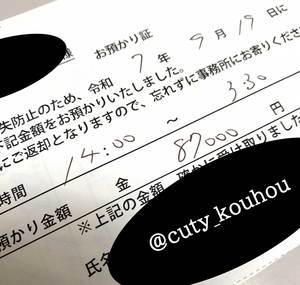 様 お預かり証
失防止のため、令和 7年 9月 19日に
下記金額をお預かりいたしました。
ので、忘れずに事務所にお寄りくださ
にご返却となりますので、
時間 14:00 ～ 3:30
預かり金額 金 87000 円
※上記の金額 確かに受け取りました
氏名
@cuty_kouhou